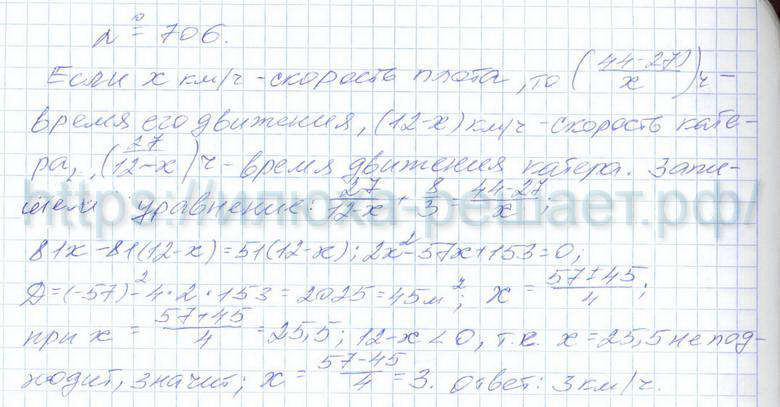 № 706.
Если x км/ч - скорость плота, то (44-27/x) ч -
время его движения, (12-x) км/ч - скорость кате-
ра, (27/12-x) ч - время движения катера. Запи-
шем уравнение: 27/12-x + 8/3 = 44-27/x;
https://илюха-решает.рф/
81x - 81(12-x) = 51(12-x); 2x² - 57x + 153 = 0;
Д = (-57)² - 4 · 2 · 153 = 2025 = 45²; x = 57±45/4;
при x = 57+45/4 = 25,5; 12-x < 0, т.к. x = 25,5 не под-
ходит, значит; x = 57-45/4 = 3. ответ: 3 км/ч.